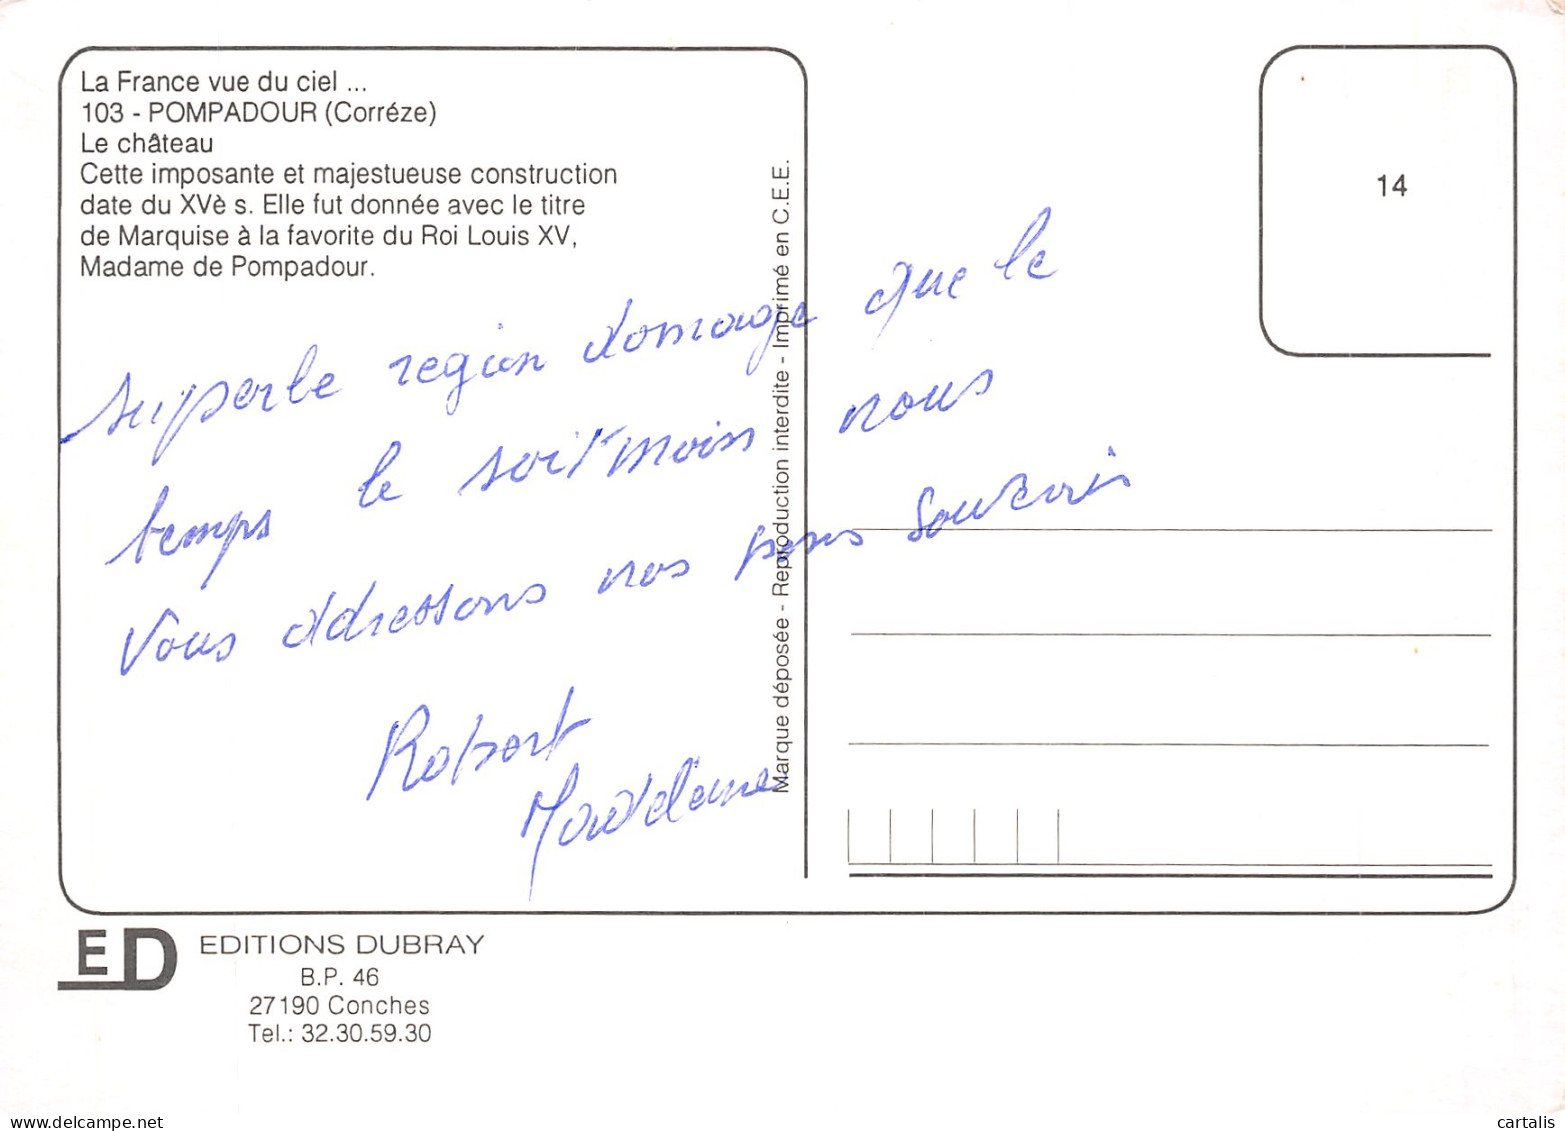 La France vue du ciel ...
103 - POMPADOUR (Corréze)
Le château
Cette imposante et majestueuse construction
date du XVè s. Elle fut donnée avec le titre
de Marquise à la favorite du Roi Louis XV,
Madame de Pompadour.
14
superbe region domage que le
temps le soit moin nous
vous adressons nos bons souvenis
Robert
Madeleine
Marque déposée - Reproduction interdite - Imprimé en C.E.E.
ED EDITIONS DUBRAY
B.P. 46
27190 Conches
Tel.: 32.30.59.30
delcampe.net
cartalis